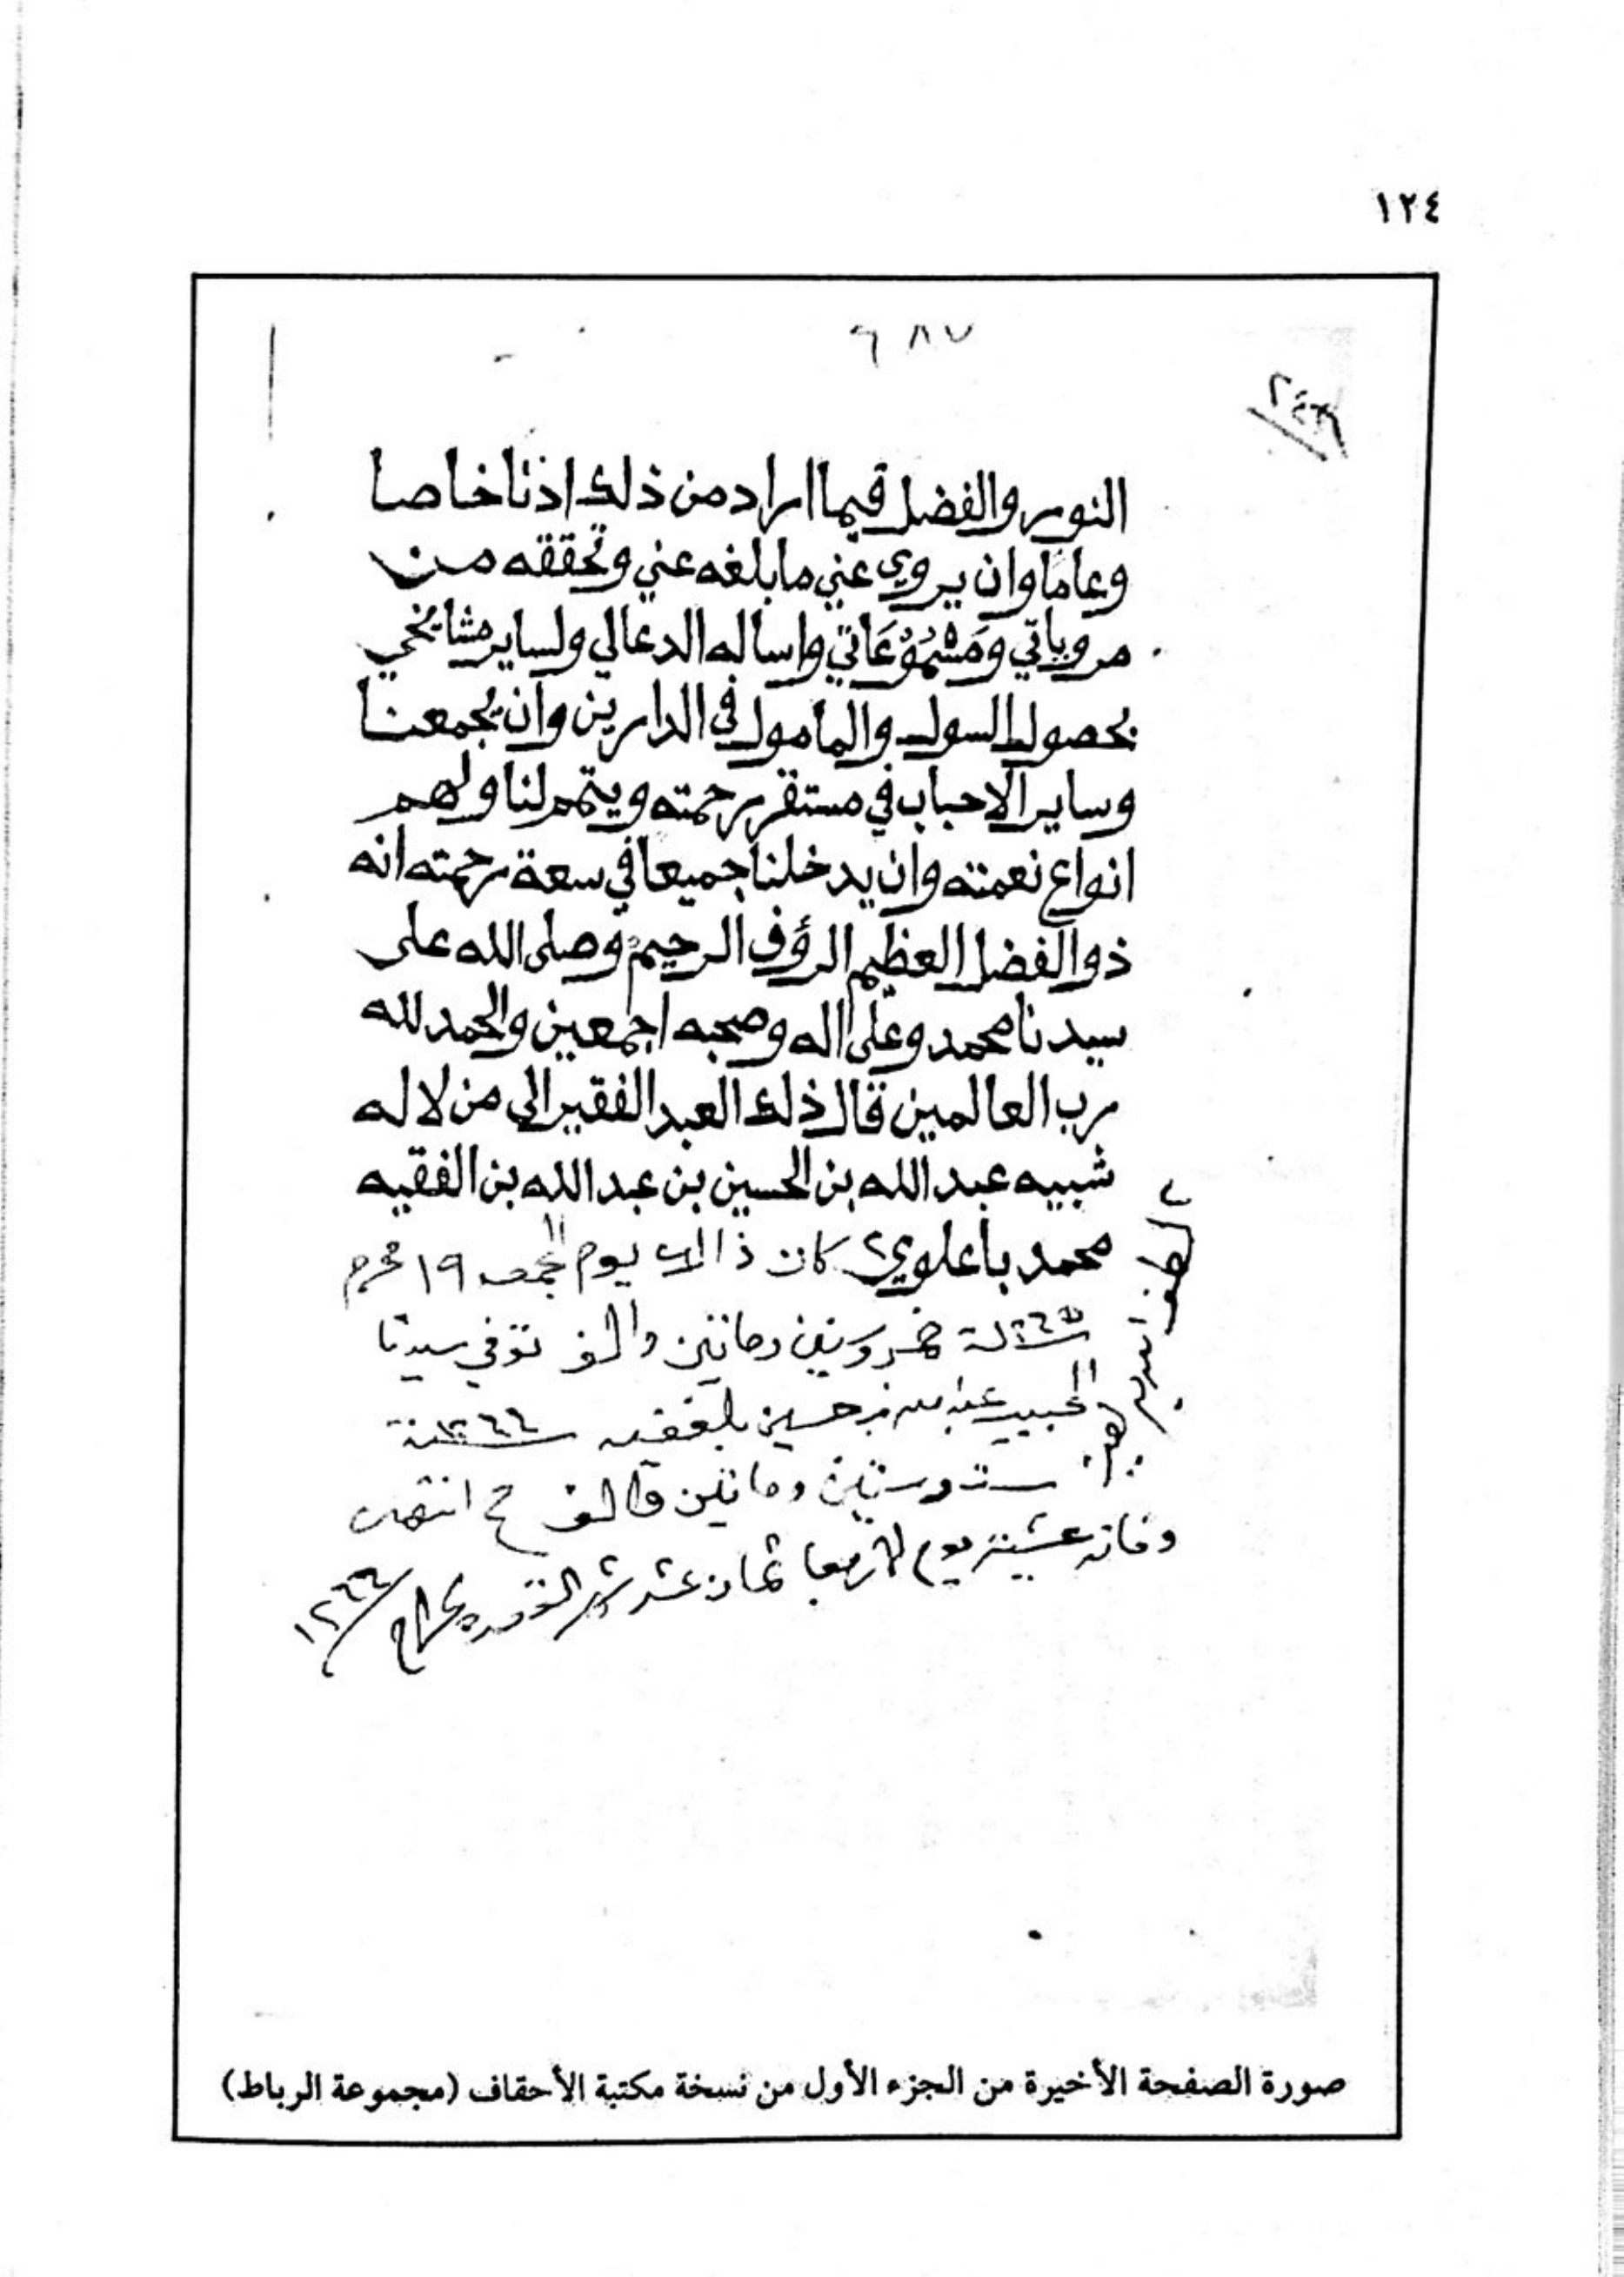 ١٢٤
٦٨٧
النور والفضل فيما اراد من ذلك اذنا خاصا
وعاما وان يروي عني ما بلغه عني وتحققه من
مروياتي ومَسْمُوْعَاتي واساله الدعا لي ولساير مشايخي
بحصول السول والمامول في الدارين وان يجمعنا
وساير الاحباب في مستقر رحمته ويتمم لنا ولهم
انواع نعمته وان يدخلنا جميعا في سعة رحمته انه
ذو الفضل العظيم الرؤف الرحيم وصلى الله على
سيدنا محمد وعلى اله وصحبه اجمعين والحمد لله
رب العالمين قال ذلك العبد الفقير الى من لا له
شبيه عبد الله بن الحسين بن عبد الله بن الفقيه
محمد باعلوي كان ذالك يوم الجمعه ١٩ محرم
سنة ١٢٦٥ خمس وستين ومائتين والف توفي سيدنا
الحبيب عبد الله بن حسين بلفقيه سنة ١٢٦٦
ست وستين ومائتين والف انتهى
وفاته عشية يوم الاربعا ثمان عشر شهر القعده الحرام ١٢٦٦
لطف الله بهم
صورة الصفحة الأخيرة من الجزء الأول من نسخة مكتبة الأحقاف (مجموعة الرباط)